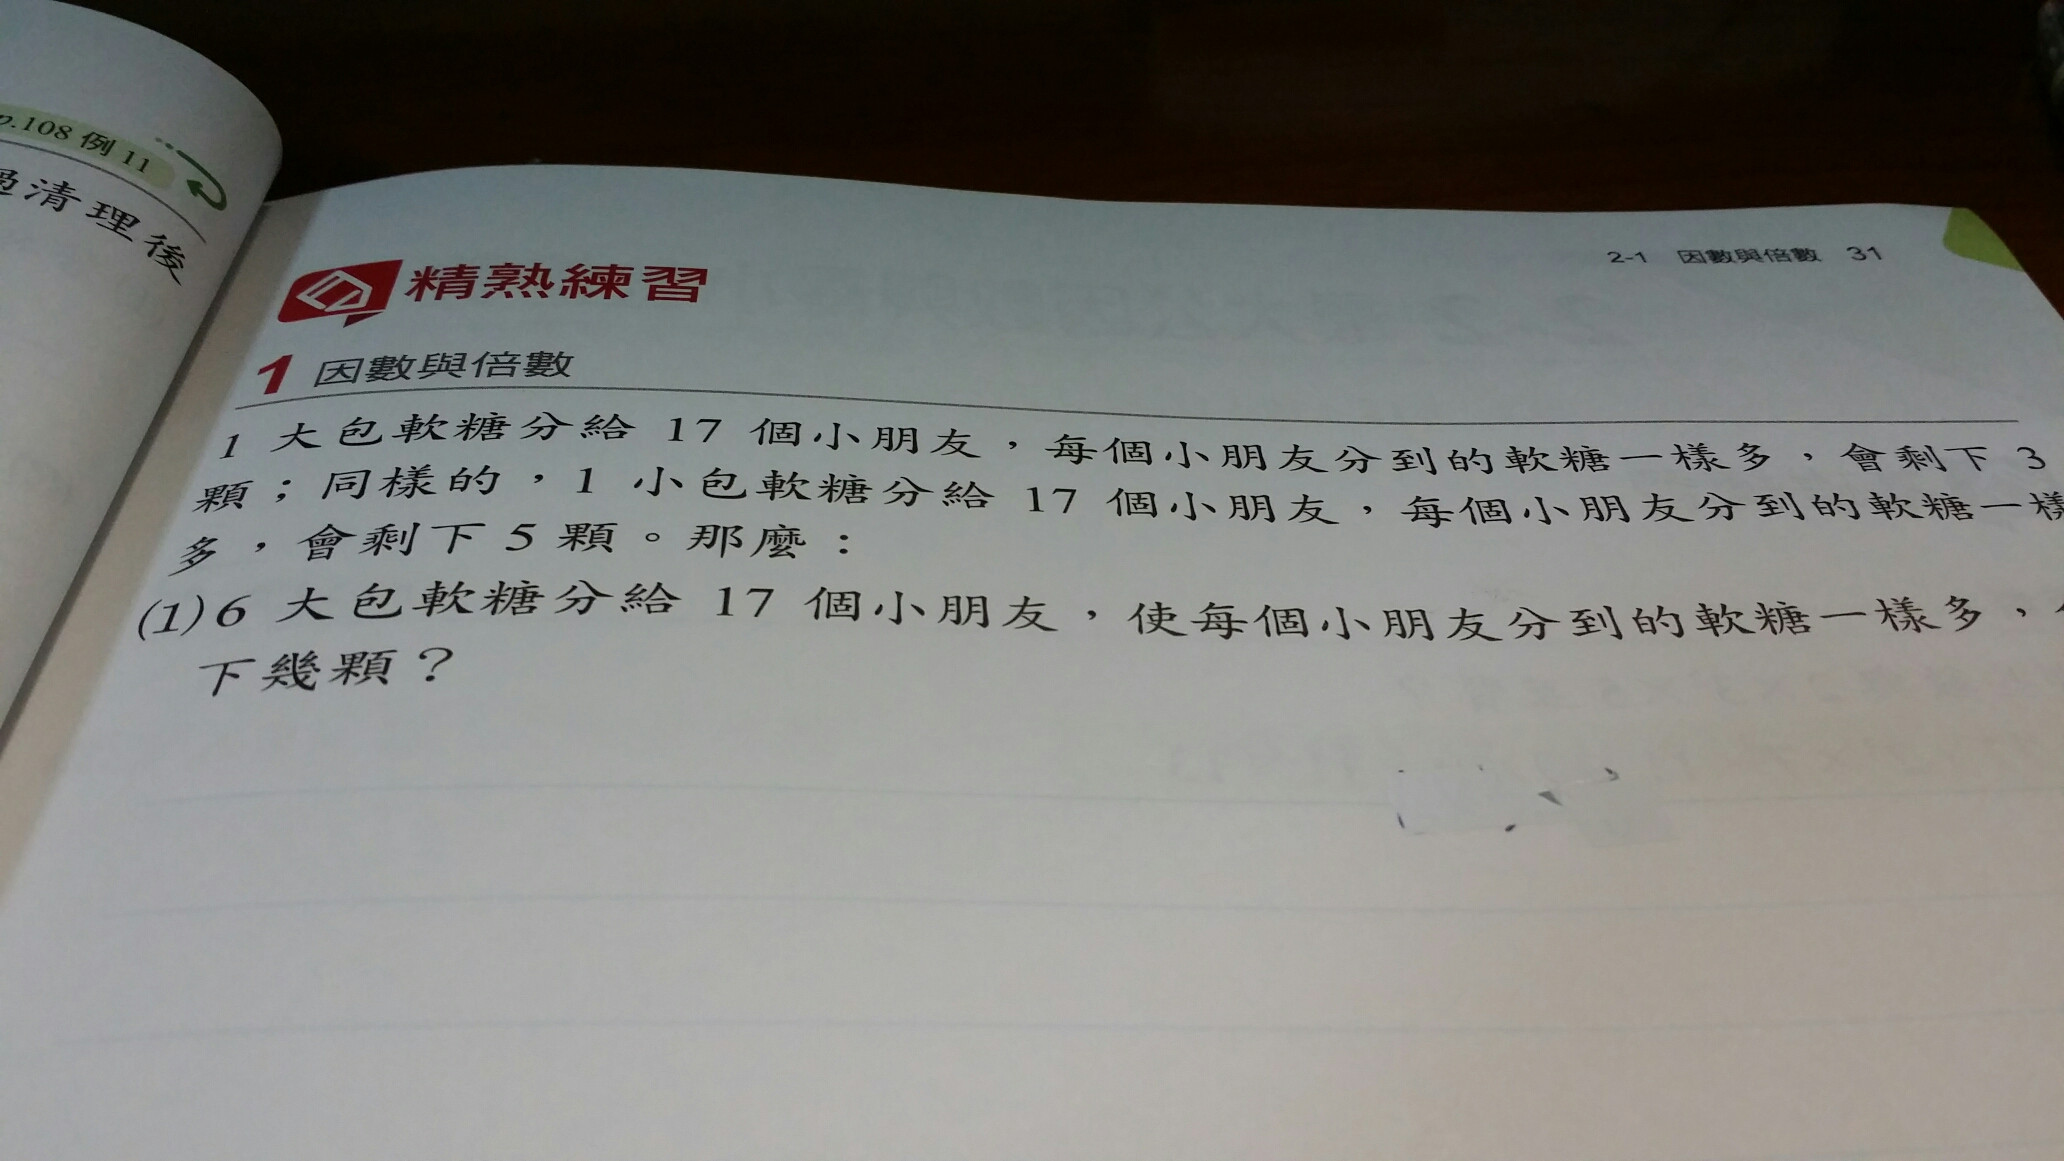 p.108 例 11
過清理後
2-1 因數與倍數 31
精熟練習
1 因數與倍數
1 大包軟糖分給 17 個小朋友，每個小朋友分到的軟糖一樣多，會剩下 3
顆；同樣的，1 小包軟糖分給 17 個小朋友，每個小朋友分到的軟糖一樣
多，會剩下 5 顆。那麼：
(1) 6 大包軟糖分給 17 個小朋友，使每個小朋友分到的軟糖一樣多，
下幾顆？